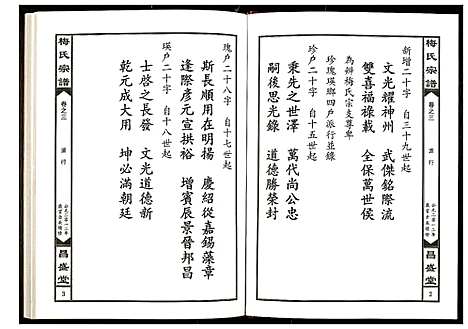 梅氏宗譜
卷之三
派行
昌盛堂
2
新增二十字 自三十九世起
文光耀神州 武傑銘際流
雙喜福祿載 全保萬世侯
為辨梅氏宗支尊卑
珍瑰瑛鄉四户派行並列
珍户二十字 自十五世起
秉先之世澤 萬代尚公忠
嗣後思光錄 道德勝榮封
瑰户二十八字 自十七世起
斯長順用在明揚 慶紹從嘉錫藻章
逢際彥元宣拱裕 增賓辰景晉邦昌
瑛户二十字 自十八世起
士啓之長發 文光道德新
乾元成大用 坤必滿朝廷
梅氏宗譜
卷之三
派行
昌盛堂
3